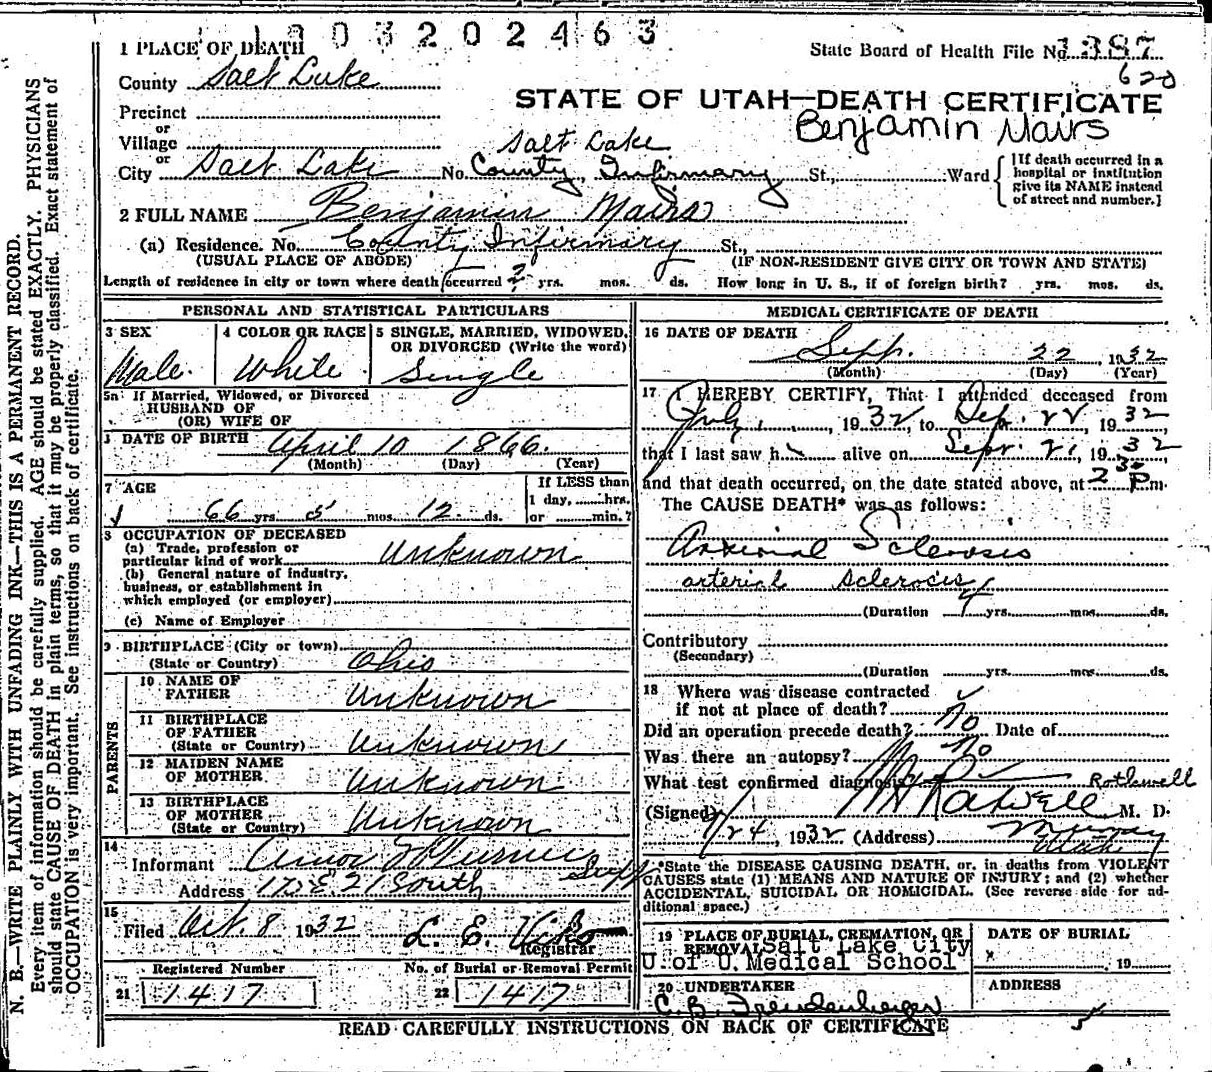 1003202463
1 PLACE OF DEATH
State Board of Health File No. 1387
620
County Salt Lake
STATE OF UTAH—DEATH CERTIFICATE
Precinct
Benjamin Mairs
or
Village
Salt Lake
or
City Salt Lake No. County Infirmary St., Ward
[If death occurred in a
hospital or institution
give its NAME instead
of street and number.]
2 FULL NAME Benjamin Mairs
(a) Residence. No. County Infirmary St.,
(USUAL PLACE OF ABODE) (IF NON-RESIDENT GIVE CITY OR TOWN AND STATE)
Length of residence in city or town where death occurred 2 yrs. mos. ds. How long in U. S., if of foreign birth? yrs. mos. ds.
PERSONAL AND STATISTICAL PARTICULARS
3 SEX
Male.
4 COLOR OR RACE
White
5 SINGLE, MARRIED, WIDOWED,
OR DIVORCED (Write the word)
Single
5a If Married, Widowed, or Divorced
HUSBAND OF
(OR) WIFE OF
DATE OF BIRTH April 10 1866.
(Month) (Day) (Year)
7 AGE
66 yrs. 5 mos. 12 ds.
If LESS than
1 day, hrs.
or min.?
8 OCCUPATION OF DECEASED
(a) Trade, profession or
particular kind of work Unknown
(b) General nature of industry,
business, or establishment in
which employed (or employer)
(c) Name of Employer
9 BIRTHPLACE (City or town)
(State or Country) Ohio
PARENTS
10 NAME OF
FATHER Unknown
11 BIRTHPLACE
OF FATHER
(State or Country) Unknown
12 MAIDEN NAME
OF MOTHER Unknown
13 BIRTHPLACE
OF MOTHER
(State or Country) Unknown
14
Informant Supt.
Address 175 E 21 South
15
Filed Oct. 8 1932 L. E.
Registrar
Registered Number
21 1417
No. of Burial or Removal Permit
22 1417
MEDICAL CERTIFICATE OF DEATH
16 DATE OF DEATH
Sept. 22, 1932
(Month) (Day) (Year)
17 I HEREBY CERTIFY, That I attended deceased from
July, 1932, to Sep. 22, 1932
that I last saw h alive on Sept. 21, 1932
and that death occurred, on the date stated above, at 2 30 P m.
The CAUSE DEATH* was as follows:
Arterial Sclerosis
arterial sclerosis
(Duration yrs. mos. ds.
Contributory
(Secondary)
(Duration yrs. mos. ds.
18 Where was disease contracted
if not at place of death?
Did an operation precede death? No Date of
Was there an autopsy? No
What test confirmed diagnosis? Rothwell
(Signed) Rotwell M. D.
9/24, 1932 (Address) Murray
Utah
*State the DISEASE CAUSING DEATH, or, in deaths from VIOLENT
CAUSES state (1) MEANS AND NATURE OF INJURY; and (2) whether
ACCIDENTAL, SUICIDAL OR HOMICIDAL. (See reverse side for ad-
ditional space.)
19 PLACE OF BURIAL, CREMATION, OR
REMOVAL Salt Lake City
U. of U. Medical School
DATE OF BURIAL
, 19
20 UNDERTAKER
C. B. Freudenberger
ADDRESS
READ CAREFULLY INSTRUCTIONS ON BACK OF CERTIFICATE
N. B.—WRITE PLAINLY WITH UNFADING INK—THIS IS A PERMANENT RECORD.
Every item of information should be carefully supplied. AGE should be stated EXACTLY. PHYSICIANS
should state CAUSE OF DEATH in plain terms, so that it may be properly classified. Exact statement of
OCCUPATION is very important. See instructions on back of certificate.